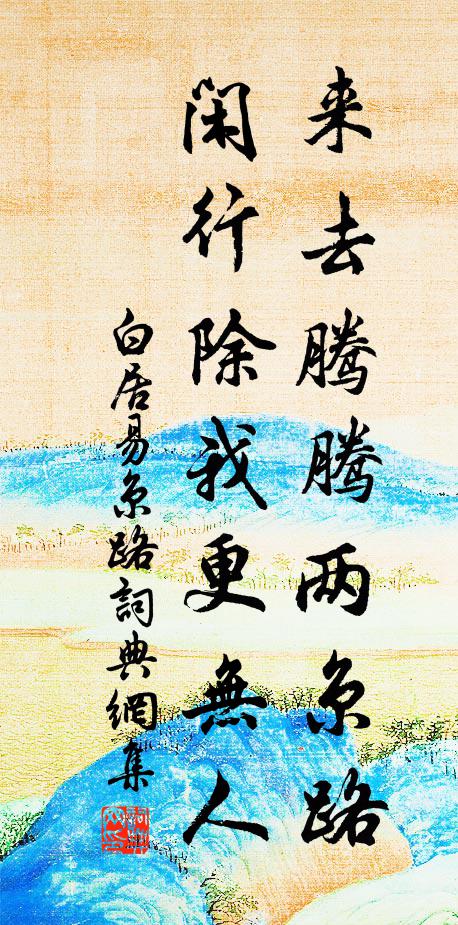 来去腾腾两京路
闲行除我更無人
白居易京路詞典網集